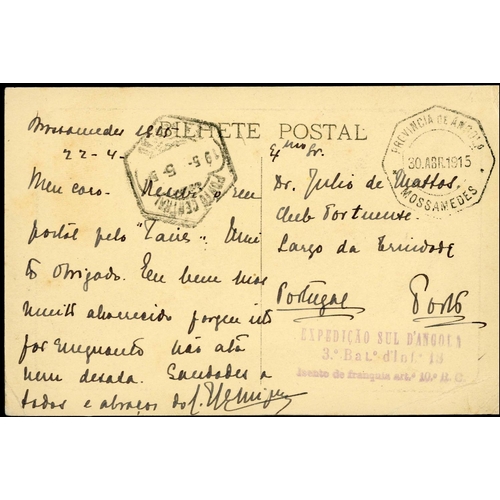 BILHETE POSTAL
Mossamedes 1915
22-4-
Meu caro. Recebi seu
postal pelo "Zaire". Mui
to obrigado. Eu bem mas
muito aborrecido porque isto
por emquanto não ata
nem desata. Saudades a
todos e abraços do
PORTO CENTRAL
Exmo Sr.
Dr. Julio de Mattos
Club Portuense
Largo da Trindade
Portugal Porto
PROVINCIA DE ANGOLA
30.ABR.1915
MOSSAMEDES
EXPEDIÇÃO SUL D'ANGOLA
3.º Bat.º d'Inf.ª 18
Isento de franquia art.º 10.º R. C.